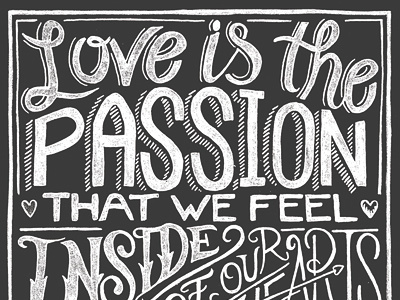 Love is the
PASSION
THAT WE FEEL
INSIDE
OF OUR
HEARTS